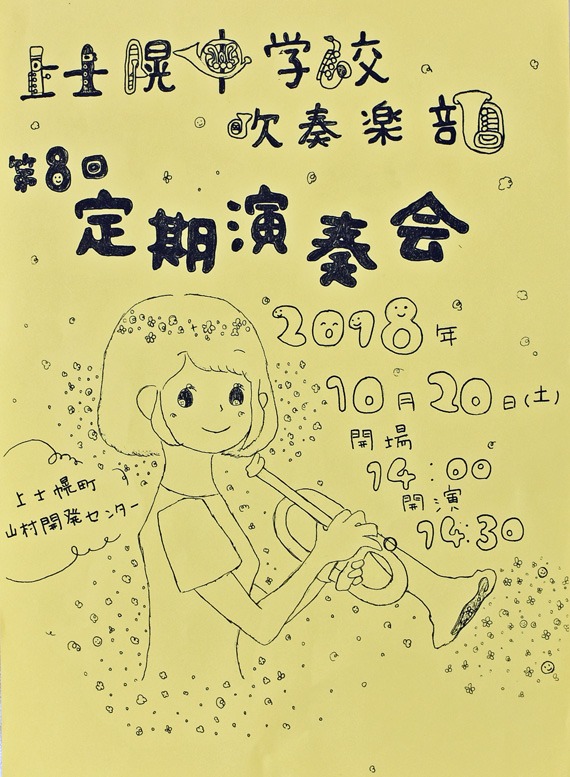 上士幌中学校
吹奏楽部
第8回
定期演奏会
2018年
10月20日(土)
開場
14:00
開演
14:30
上士幌町
山村開発センター